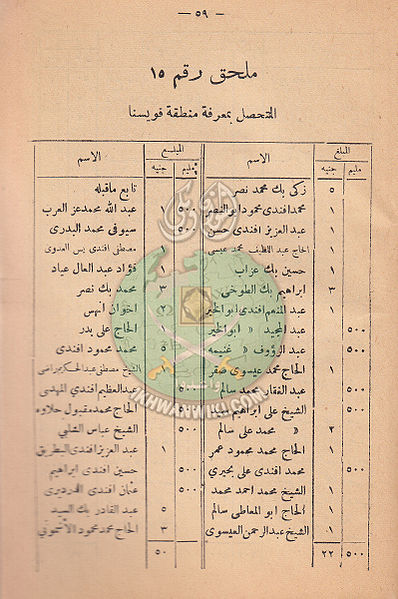 — ٥٩ —
ملحق رقم ١٥
المتحصل بمعرفة منطقة قويسنا
المبلغ الاسم
مليم جنيه
٥ زكى بك محمد نصر
١ محمد افندى محمود ابو النصر
١ عبد العزيز افندى حسن
١ الحاج عبد اللطيف محمد عيسى
١ حسين بك عزاب
٣ ابراهيم بك الطوخى
١ عبد المنعم افندى ابو الخير
٥٠٠ عبد المجيد » ابو الخير
٥٠٠ عبد الرؤوف » غنيمه
١ الحاج محمد عيسوى صقر
٥٠٠ عبد الغفار محمد سالم
٥٠٠ الشيخ على ابراهيم
٢ » محمد على سالم
١ الحاج محمد محمود عمر
٥٠٠ محمد افندى على بحيرى
١ الشيخ محمد احمد محمد
١ الحاج ابو المعاطى سالم
١ الشيخ عبد الرحمن العيسوى
٥٠٠ ٢٢
المبلغ الاسم
مليم جنيه
تابع ماقبله
٥٠٠ ١ عبد الله محمد عز العرب
٥٠٠ محمد البدرى
١ مصطفى افندى يس العدوى
١ فؤاد عبد العال عياد
٣ محمد بك نصر
(٢) اخوان ابهس
١ الحاج على بدر
٥ محمد محمود افندى
الشيخ مصطفى عبد الحكيم
٥٠٠ عبد العظيم افندى المهدى
الحاج محمد مقبول حلاوه
٥٠٠ الشيخ عباس الشلبى
١ عبد العزيز افندى البطريق
٥٠٠ حسين افندى ابراهيم
٥٠٠ عثمان افندى الدرديرى
٥ عبد القادر بك السيد
٣ الحاج محمد محمود الأشمونى
٥٠
IKHWANWIKI.COM